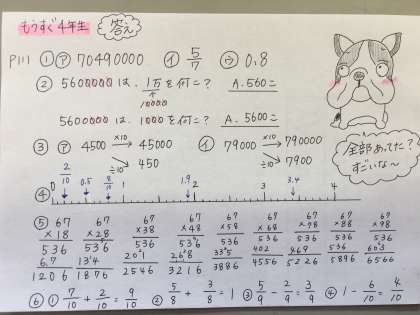 もうすぐ4年生 答え
P111 ① ㋐ 70490000 ㋑ 5/7 ㋒ 0.8
② 5600000は、1万を何こ? A.560こ
10000
5600000は 1000を何こ? A.5600こ
③ ㋐ 4500 ×10 → 45000 ㋑ 79000 ×10 → 790000
÷10 → 450 ÷10 → 7900
全部あってた?
すごいな〜
2/10 0.5 8/10 1.9 3.4
④ 0 1 2 3 4
⑤ 67 67 67 67 67 67 67 67 67
×18 ×28 ×38 ×48 ×58 ×68 ×78 ×88 ×98
536 536 536 536 536 536 536 536 536
67 134 201 268 335 402 469 536 603
1206 1876 2546 3216 3886 4556 5226 5896 6566
⑥ ① 7/10 + 2/10 = 9/10 ② 5/8 + 3/8 = 1 ③ 5/9 - 2/9 = 3/9 ④ 1 - 6/10 = 4/10